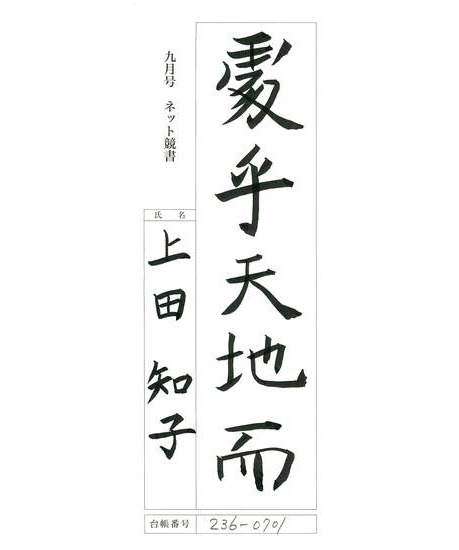 處乎天地而
九月号 ネット競書
氏名
上田 知子
台帳番号 236-0701